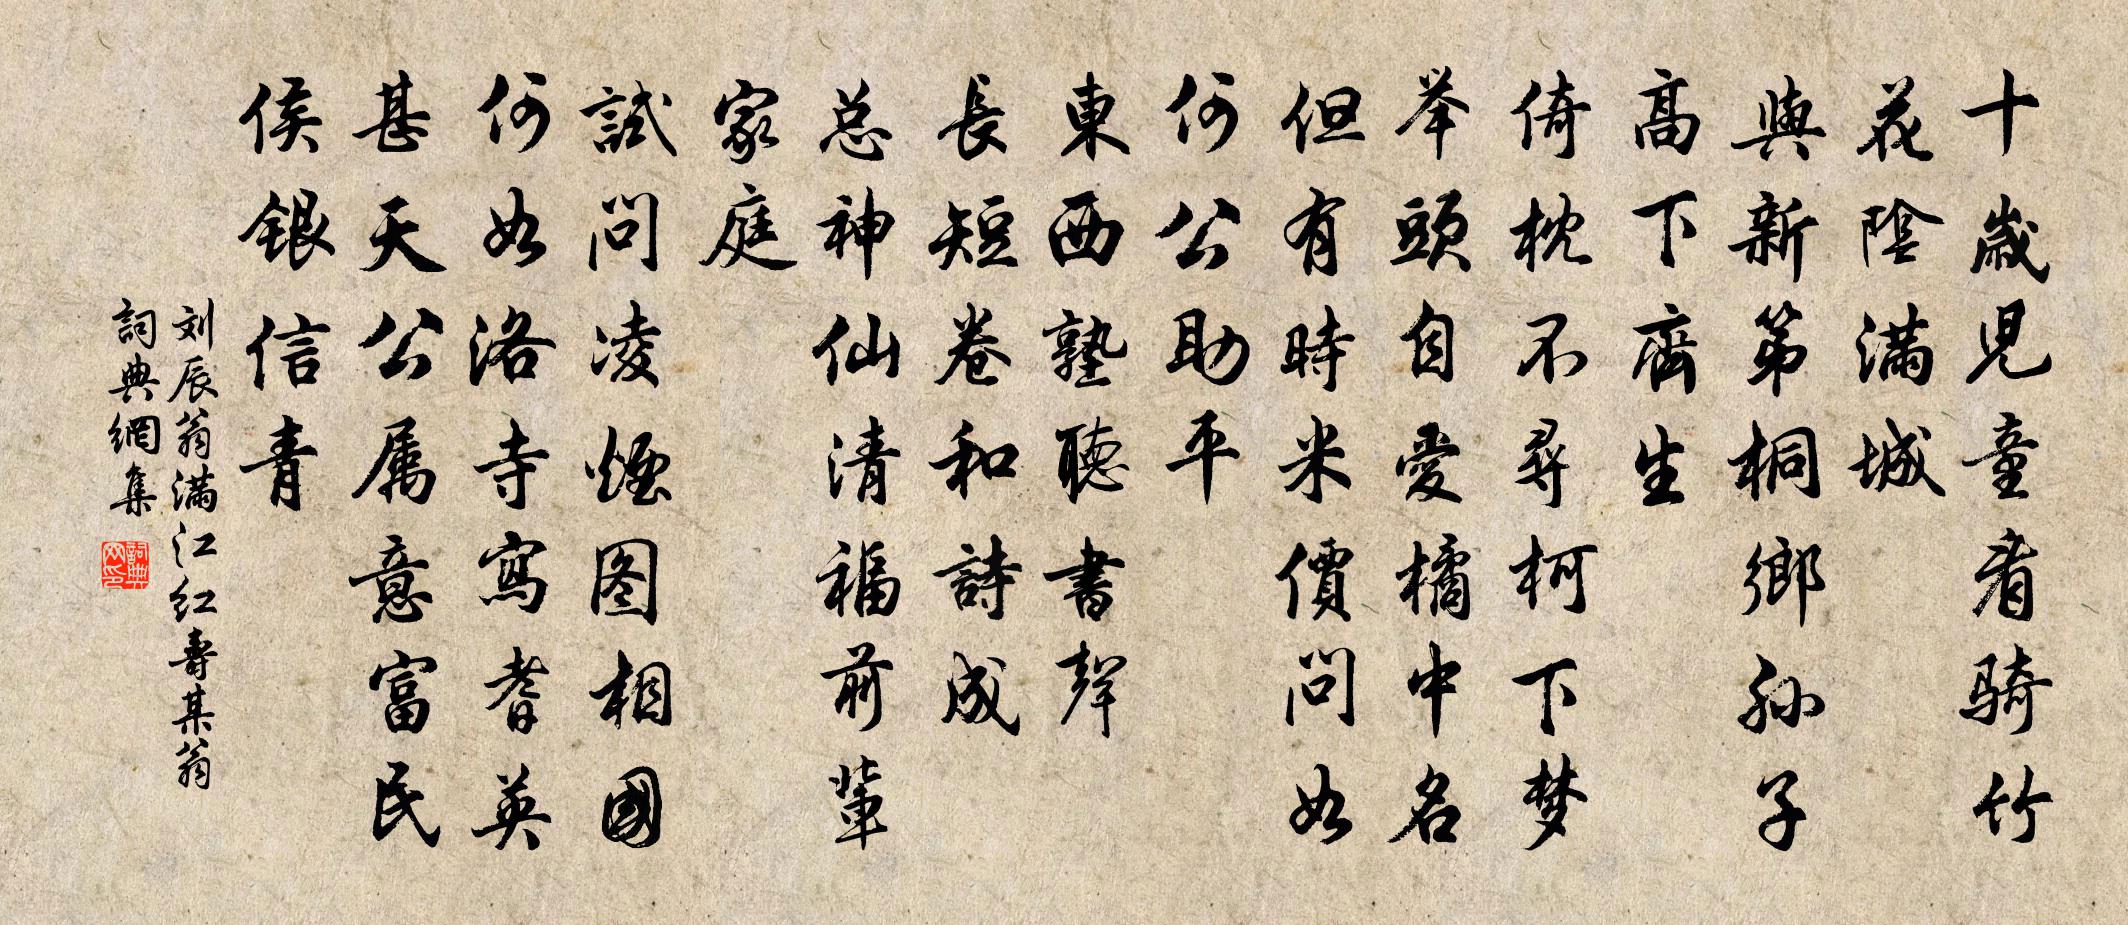 十歲児童看骑竹
花陰满城
與新第桐鄉孙子
高下齊生
倚枕不尋柯下梦
举頭自愛橘中名
但有時米價問如
何公助平
東西塾聽書聲
長短卷和詩成
总神仙清福前輩
家庭
試問凌煙图相國
何如洛寺寫耆英
甚天公属意富民
侯银信青
刘辰翁满江红壽某翁
詞典網集
詞典网印